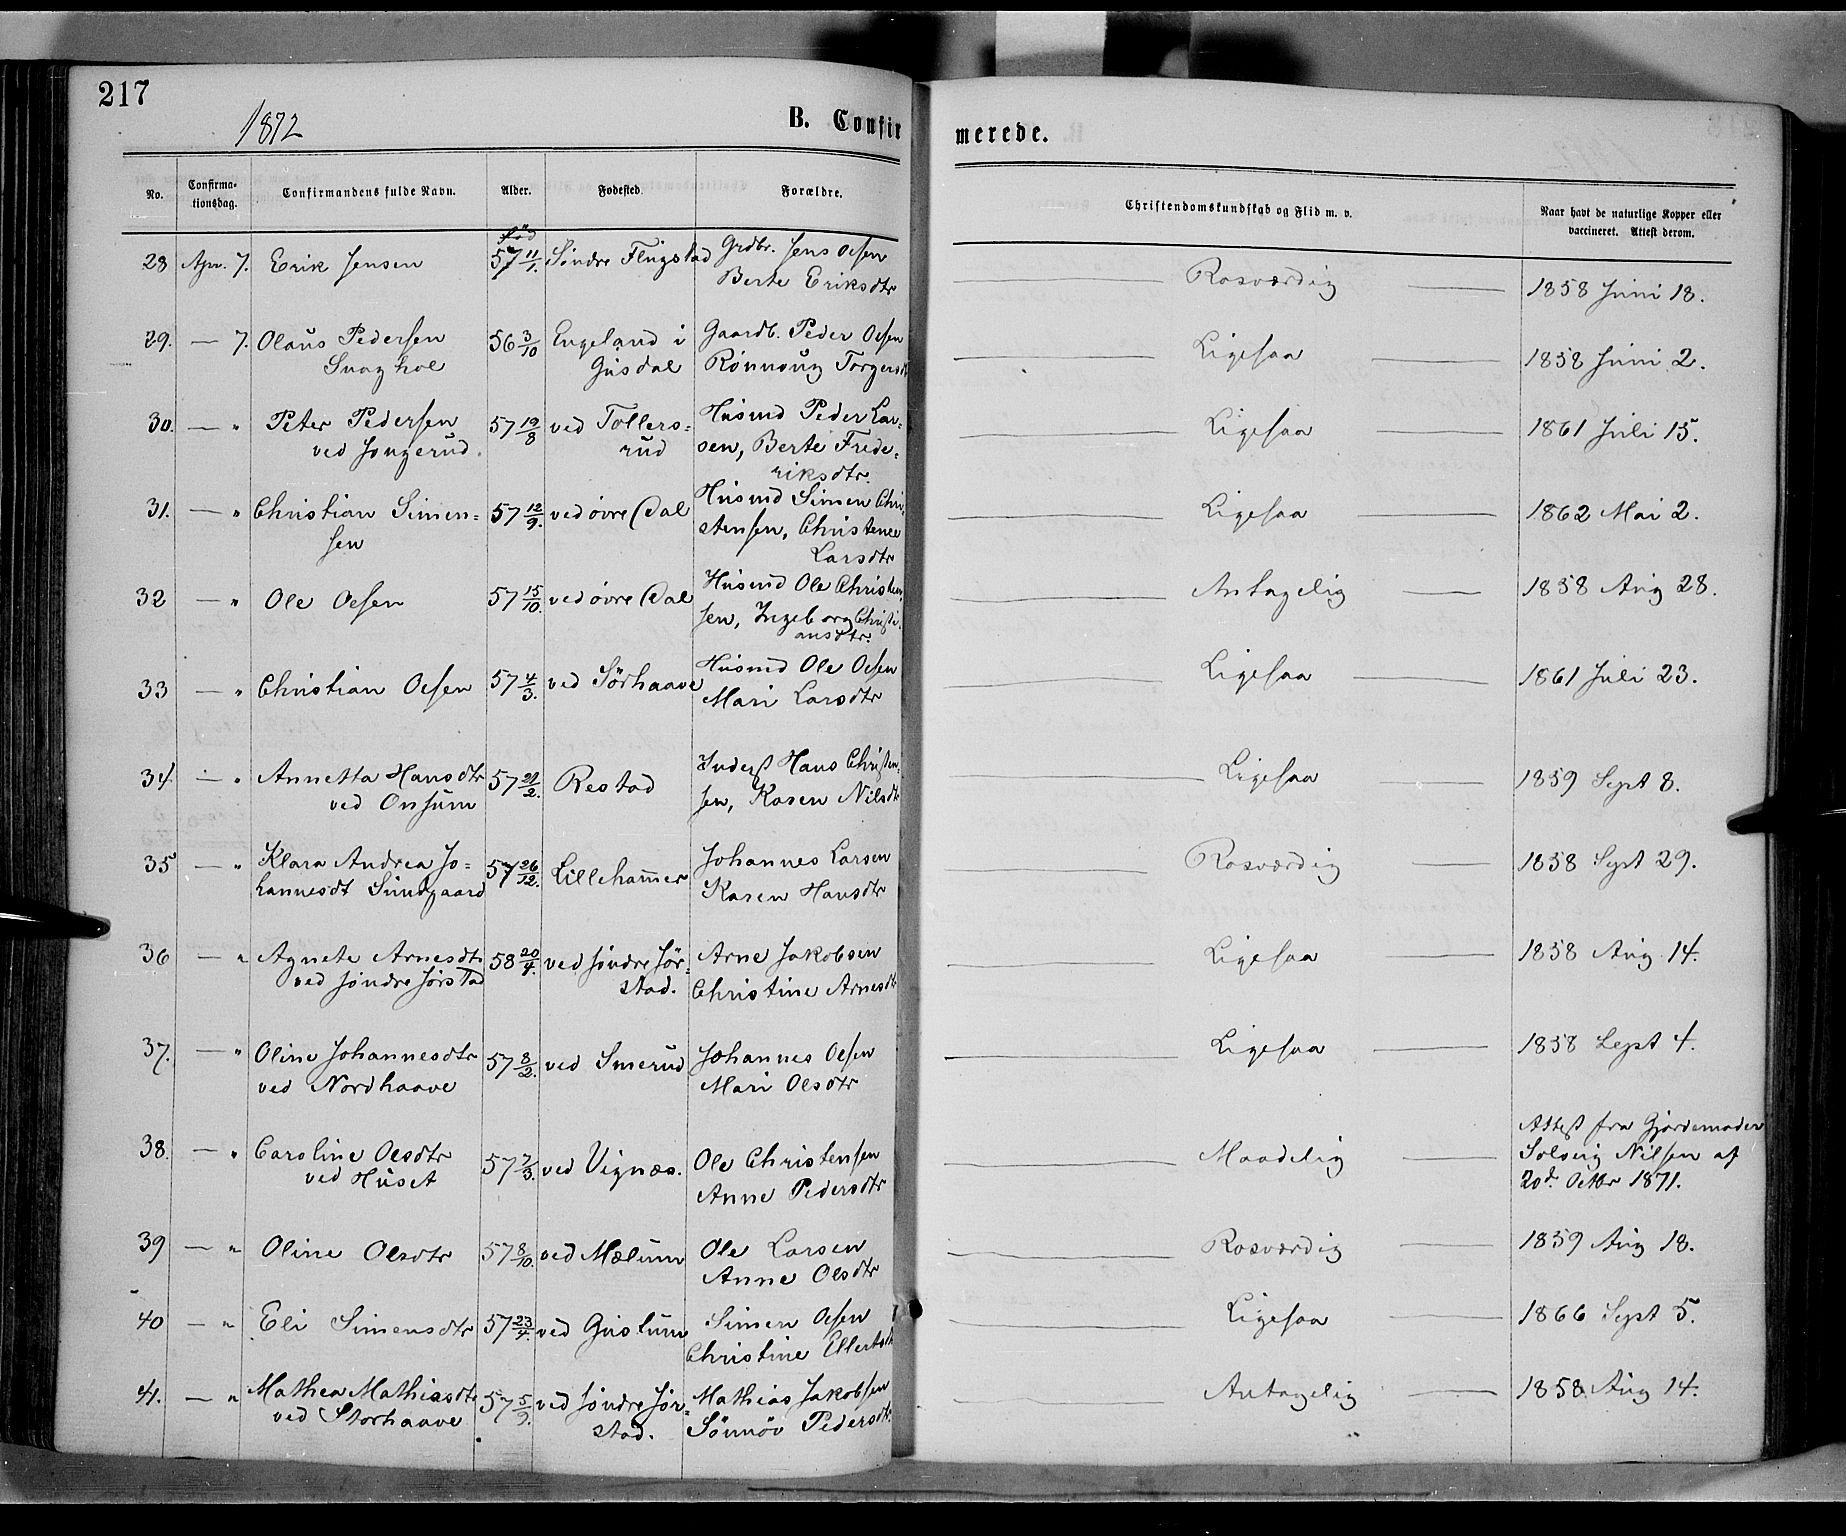 217
1872
B. Confirmerede.
No. Confirmationsdag. Confirmandens fulde Navn. Alder. Fødested. Forældre. Christendomskundskab og Flid m. v. Naar havt de naturlige Kopper eller vaccineret. Attest derom.
fød
28 Apr. 7. Erik Jensen 57 11/1. Søndre Flugstad Grdbr. Jens Olsen Roesværdig 1858 Juni 18.
Berte Eriksdtr
29. — 7. Olaus Pedersen 56 3/10 Engeland i Gaardb. Peder Olsen Ligesaa 1858 Juni 2.
Svaghol Gusdal Rønnoug Torgersdt
30. — " Peter Pedersen 57 19/8 ved Tollers- Husmd Peder Lar- Ligesaa 1861 Juli 15.
ved Jongerud. rud sen, Berte Frede-
riksdtr.
31. — " Christian Simen- 57 12/9. ved øvre Dal Husmd Simen Chri- Ligesaa 1862 Mai 2.
sen stensen, Christence
Larsdtr
32 — " Ole Olsen 57 15/10. ved øvre Dal Husmd Ole Christen- Antagelig 1858 Aug 28.
sen, Ingeborg Christi-
ansdtr.
33 — " Christian Olsen 57 4/3. ved Sørhaave Husmd Ole Olsen Ligesaa 1861 Juli 23.
Mari Larsdtr
34. — " Annetta Hansdtr 57 21/2. Restad Inderst Hans Christen- Ligesaa 1859 Sept 8.
ved Onsum sen, Karen Nilsdt
35 — " Klara Andrea Jo- 57 26/12. Lillehammer Johannes Larsen Roesværdig 1858 Sept 29.
hannesdt Sundgaard Karen Hansdtr
36 — " Agnete Arnesdtr 58 20/4. ved søndre Jør- Arne Jakobsen Ligesaa 1858 Aug 14.
ved søndre Jørstad stad. Christine Arnesdt
37. — " Oline Johannesdtr 57 8/2. ved Smerud Johannes Olsen Ligesaa 1858 Sept 4.
ved Nordhaave Mari Olsdtr
38. — " Caroline Olsdtr 57 7/3. ved Vignæs. Ole Christensen Maadelig Attest fra Gjordemoder
ved Huset Anne Pedersdtr Solveig Nilsen af
20d. Octbr 1871.
39 — " Oline Olsdtr 57 8/10. ved Mælum Ole Larsen Roesværdig 1859 Aug 18.
Anne Olsdtr
40 — " Eli Simensdtr 57 23/4. ved Guslum Simen Olsen Ligesaa 1866 Sept 5.
Christine Ellertsdt
41. — " Mathea Mathiasdtr 57 5/9. ved søndre Jør- Mathias Jakobsen Antagelig 1858 Aug 14.
ved Storhaave stad. Sønnøv Pedersdt.